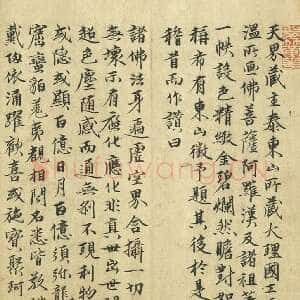 天界藏主泰東山所藏大理國
溫所画佛菩薩阿羅漢及諸祖
一帙設色精緻金碧爛然瞻對
稱希有東山徵題其後於是
稽首而作讚曰
諸佛法身遍虛空界合攝一切
無壞示有應化應化非真世出世
超色塵隨感而直無剎不現利物
或隱或顯百億日月百億須弥龍
蠻貊羗覩相聞名悉
戴依涌躍歡喜或施寶聚珂